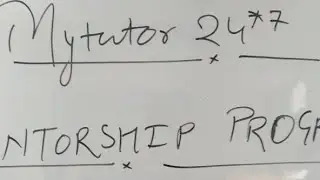 Mytutor 24*7
NTORSHIP PROGR